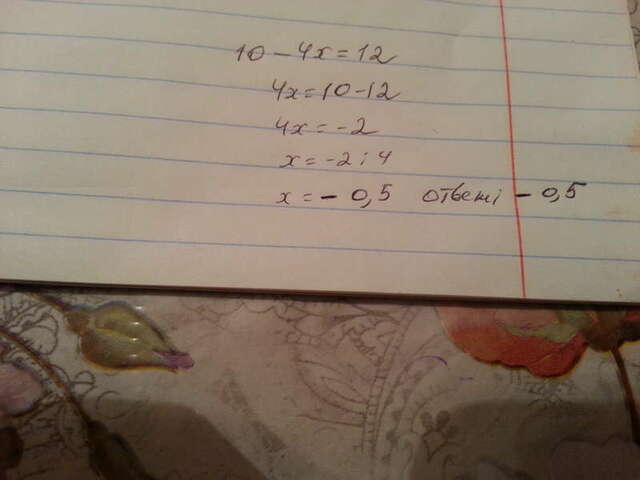 10 - 4x = 12
4x = 10 - 12
4x = -2
x = -2 : 4
x = - 0,5 ответ: - 0,5